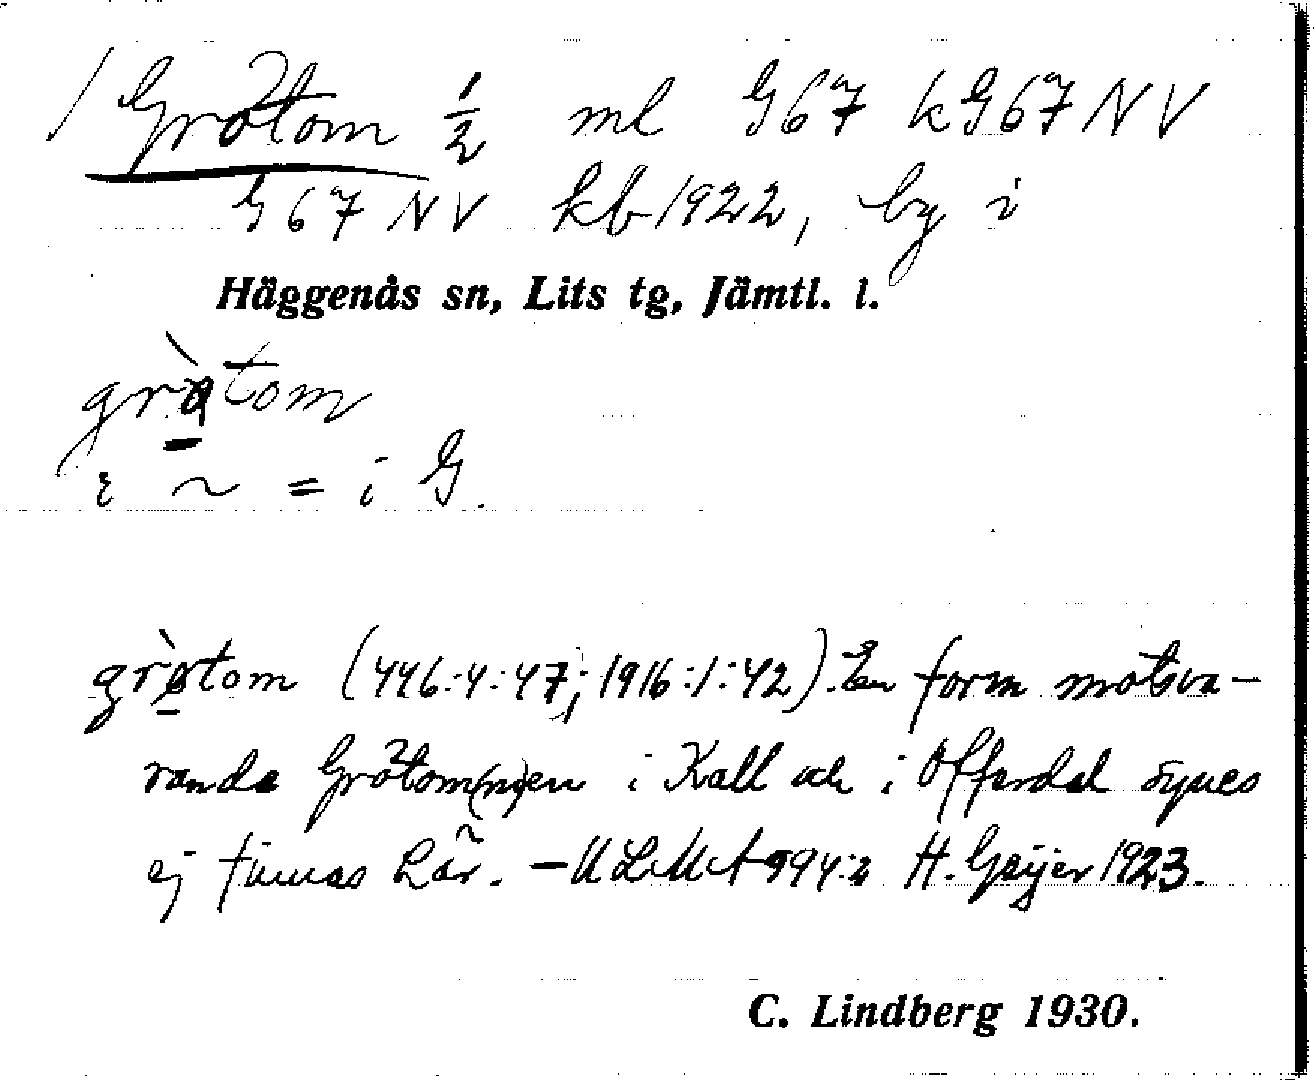 / Grötom 1/2 ml G67 kG67NV
G67NV kb 1922, by i
Häggenås sn, Lits tg, Jämtl. l.
grò̱tom
i ~ = i G.
grò̱tom (446:4:47; 1916:1:42). En form motsva-
rande Grötom(m)en i Kall och i Offerdal synes
ej finnas här. – ULMA 994:2 H. Geijer 1923.
C. Lindberg 1930.